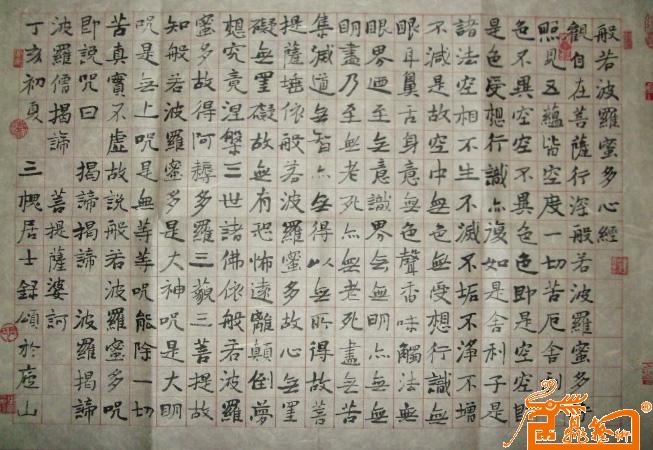 般若波羅蜜多心經
觀自在菩薩行深般若波羅蜜多
照見五蘊皆空度一切苦厄舍利
色不異空空不異色色即是空空即
是色受想行識亦復如是舍利子是
諸法空相不生不滅不垢不淨不增
不減是故空中無色無受想行識無
眼耳鼻舌身意無色聲香味觸法無
眼界迺至無意識界無無明亦無無
明盡乃至無老死亦無老死盡無苦
集滅道無智亦無得以無所得故菩
提薩埵依般若波羅蜜多故心無罣
礙無罣礙故無有恐怖遠離顛倒夢
想究竟涅槃三世諸佛依般若波羅
蜜多故得阿耨多羅三藐三菩提故
知般若波羅蜜多是大神咒是大明
咒是無上咒是無等等咒能除一切
苦真實不虛故說般若波羅蜜多咒
即說咒曰 揭諦揭諦 波羅揭諦
波羅僧揭諦 菩提薩婆訶
丁亥初夏 三槐居士錄頌於廬山